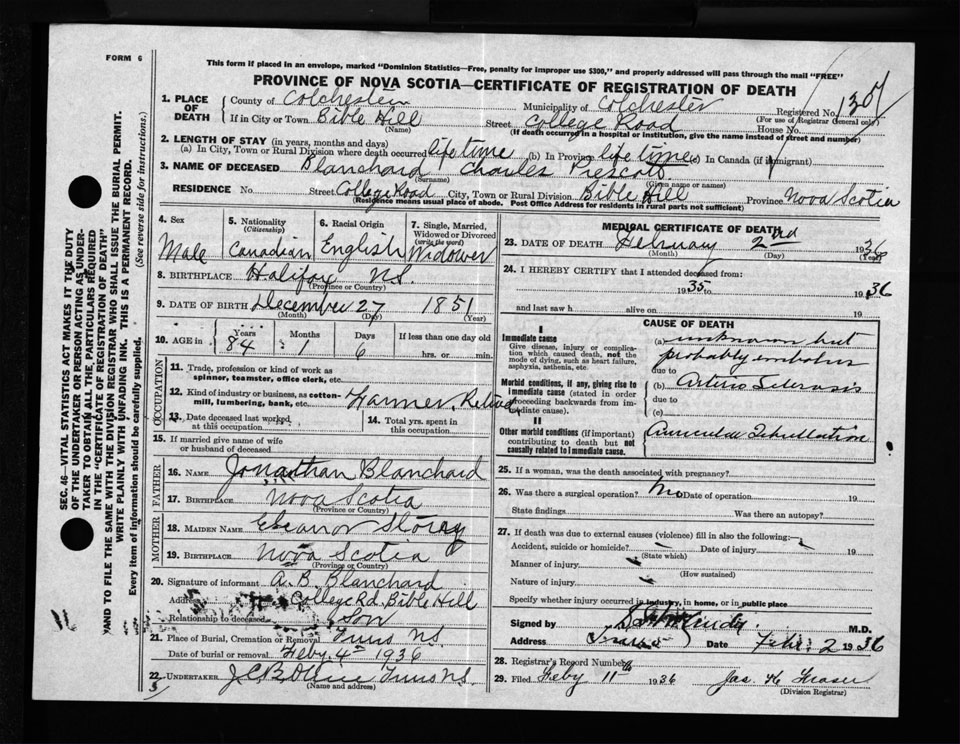 FORM 6
This form if placed in an envelope, marked "Dominion Statistics—Free, penalty for improper use $300," and properly addressed will pass through the mail "FREE"
PROVINCE OF NOVA SCOTIA—CERTIFICATE OF REGISTRATION OF DEATH
1. PLACE OF DEATH
County of Colchester Municipality of Colchester Registered No. 130
(For use of Registrar General only)
If in City or Town Bible Hill Street College Road House No.
(Name) (If death occurred in a hospital or institution, give the name instead of street and number)
2. LENGTH OF STAY (in years, months and days)
(a) In City, Town or Rural Division where death occurred life time (b) In Province life time (c) In Canada (if immigrant)
3. NAME OF DECEASED Blanchard Charles Prescott
(Surname) (Given name or names)
RESIDENCE No. Street College Road City, Town or Rural Division Bible Hill Province Nova Scotia
(Residence means usual place of abode. Post Office Address for residents in rural parts not sufficient)
4. Sex 5. Nationality 6. Racial Origin 7. Single, Married, Widowed or Divorced
(Citizenship) (write the word)
Male Canadian English Widower
8. BIRTHPLACE Halifax N.S.
(Province or Country)
9. DATE OF BIRTH December 27 1851
(Month) (Day) (Year)
10. AGE in Years Months Days If less than one day old
84 1 6 hrs. or min.
OCCUPATION
11. Trade, profession or kind of work as spinner, teamster, office clerk, etc.
12. Kind of industry or business, as cotton-mill, lumbering, bank, etc. Farmer, Retired
13. Date deceased last worked at this occupation
14. Total yrs. spent in this occupation
15. If married give name of wife or husband of deceased
FATHER
16. NAME Jonathan Blanchard
17. BIRTHPLACE Nova Scotia
(Province or Country)
MOTHER
18. MAIDEN NAME Eleanor Storey
19. BIRTHPLACE Nova Scotia
(Province or Country)
20. Signature of informant A. B. Blanchard
Address College Rd, Bible Hill
Relationship to deceased Son
21. Place of Burial, Cremation or Removal Truro N.S.
Date of burial or removal Feby. 4th 1936
22. UNDERTAKER Truro N.S.
(Name and address)
MEDICAL CERTIFICATE OF DEATH
23. DATE OF DEATH February 2nd 1936
(Month) (Day) (Year)
24. I HEREBY CERTIFY that I attended deceased from:
1935 to 1936
and last saw h alive on 19
CAUSE OF DEATH
I
Immediate cause
Give disease, injury or complication which caused death, not the mode of dying, such as heart failure, asphyxia, asthenia, etc.
(a) unknown but
probably embolus
due to
Morbid conditions, if any, giving rise to immediate cause (stated in order proceeding backwards from immediate cause).
(b) Arterio Sclerosis
due to
(c)
II
Other morbid conditions (if important) contributing to death but not causally related to immediate cause.
Auricular Fibrillation
25. If a woman, was the death associated with pregnancy?
26. Was there a surgical operation? No Date of operation 19
State findings Was there an autopsy?
27. If death was due to external causes (violence) fill in also the following:
Accident, suicide or homicide? Date of injury 19
(State which)
Manner of injury
(How sustained)
Nature of injury
Specify whether injury occurred in industry, in home, or in public place
Signed by M.D.
Address Truro Date Feb. 2 1936
28. Registrar's Record Number
29. Filed Feby 11th 1936 Jas. H Fraser
(Division Registrar)
SEC. 46—VITAL STATISTICS ACT MAKES IT THE DUTY
OF THE UNDERTAKER OR PERSON ACTING AS UNDER-
TAKER TO OBTAIN ALL THE PARTICULARS REQUIRED
IN THE "CERTIFICATE OF REGISTRATION OF DEATH"
AND TO FILE THE SAME WITH THE DIVISION REGISTRAR WHO SHALL ISSUE THE BURIAL PERMIT.
WRITE PLAINLY WITH UNFADING INK. THIS IS A PERMANENT RECORD.
Every item of information should be carefully supplied. (See reverse side for instructions.)